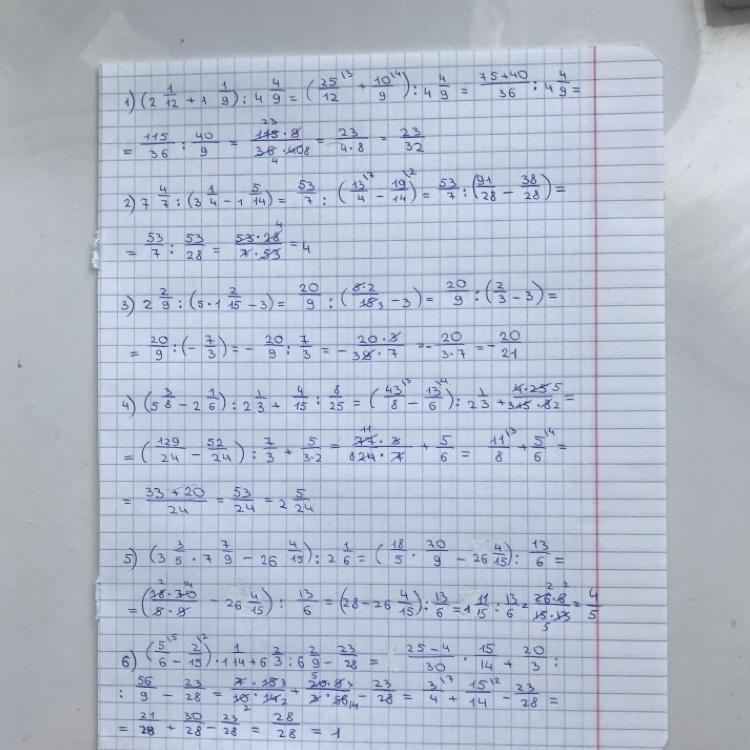 1) (2 1/12 + 1 1/9) : 4 4/9 = (25/12 \3 + 10/9 \4) : 4 4/9 = (75+40)/36 : 4 4/9 =
= 115/36 : 40/9 = (115·9)/(36·40) = 23/(4·8) = 23/32
2) 7 4/7 : (3 1/4 - 1 5/14) = 53/7 : (13/4 \7 - 19/14 \2) = 53/7 : (91/28 - 38/28) =
= 53/7 : 53/28 = (53·28)/(7·53) = 4
3) 2 2/9 : (5·1 2/15 - 3) = 20/9 : ( - 3) = 20/9 : (2/3 - 3) =
= 20/9 : (- 7/3) = - 20/9 : 7/3 = - = - 20/(3·7) = - 20/21
4) (5 3/8 - 2 1/6) : 2 1/3 + 4/15 : 8/25 = (43/8 \3 - 13/6 \4) : 2 1/3 + (4·25)/(15·8) =
= (129/24 - 52/24) : 7/3 + 5/(3·2) = (77·3)/(24·7) + 5/6 = 11/8 \3 + 5/6 \4 =
= (33+20)/24 = 53/24 = 2 5/24
5) (3 3/5 · 7 7/9 - 26 4/15) : 2 1/6 = (18/5 · 70/9 - 26 4/15) : 13/6 =
= ( - 26 4/15) : 13/6 = (28 - 26 4/15) : 13/6 = 1 11/15 : 13/6 = = 4/5
6) (5/6 \5 - 2/15 \2) · 1 1/14 + 6 2/3 : 6 2/9 - 23/28 = (25-4)/30 · 15/14 + 20/3 :
: 56/9 - 23/28 = + - 23/28 = 3/4 \7 + 15/14 \2 - 23/28 =
= 21/28 + 30/28 - 23/28 = 28/28 = 1